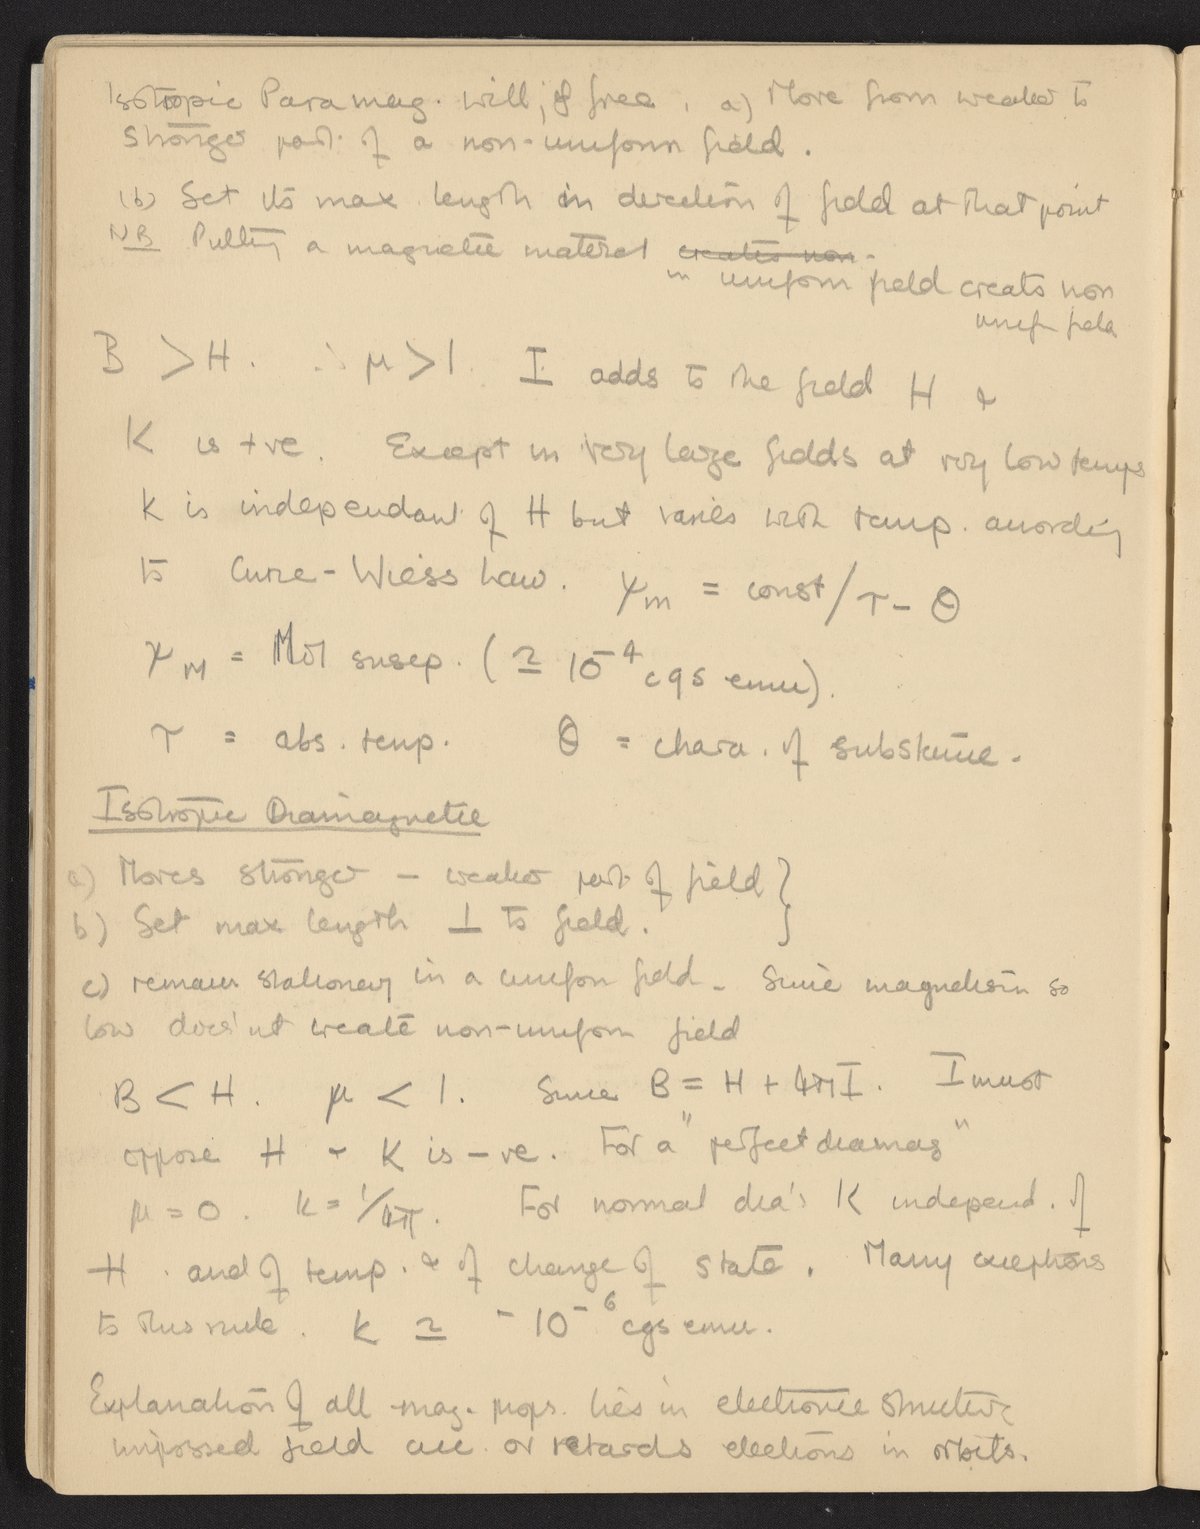 Isotropic Paramag. will, if free, a) Move from weaker to
stronger part of a non-uniform field.
(b) Set its max length in direction of field at that point
NB Putting a magnetic material creates non-
in uniform field creats non
unif field
B > H. ∴ μ > 1. I adds to the field H &
K is +ve. Except in very large fields at very low temps
K is independant of H but varies with temp. according
to Curie-Wiess Law. χm = const/T - θ
χM = Mol suscep. (≃ 10⁻⁴ cgs emu).
T = abs. temp. θ = chara. of substance.
Isotropic Diamagnetic
a) Moves stronger - weaker part of field }
b) Set max length ⊥ to field.
c) remain stationary in a uniform field - Since magnetism so
low does'nt create non-uniform field
B < H. μ < 1. Since B = H + 4πI. I must
oppose H & K is -ve. For a "perfect diamag"
μ = 0. K = 1/4π. For normal dia's K independ. of
H. and of temp. & of change of state. Many exceptions
to this rule. K ≃ -10⁻⁶ cgs emu.
Explanation of all mag. props. lies in electronic structure
imposed field acc. or retards electrons in orbits.